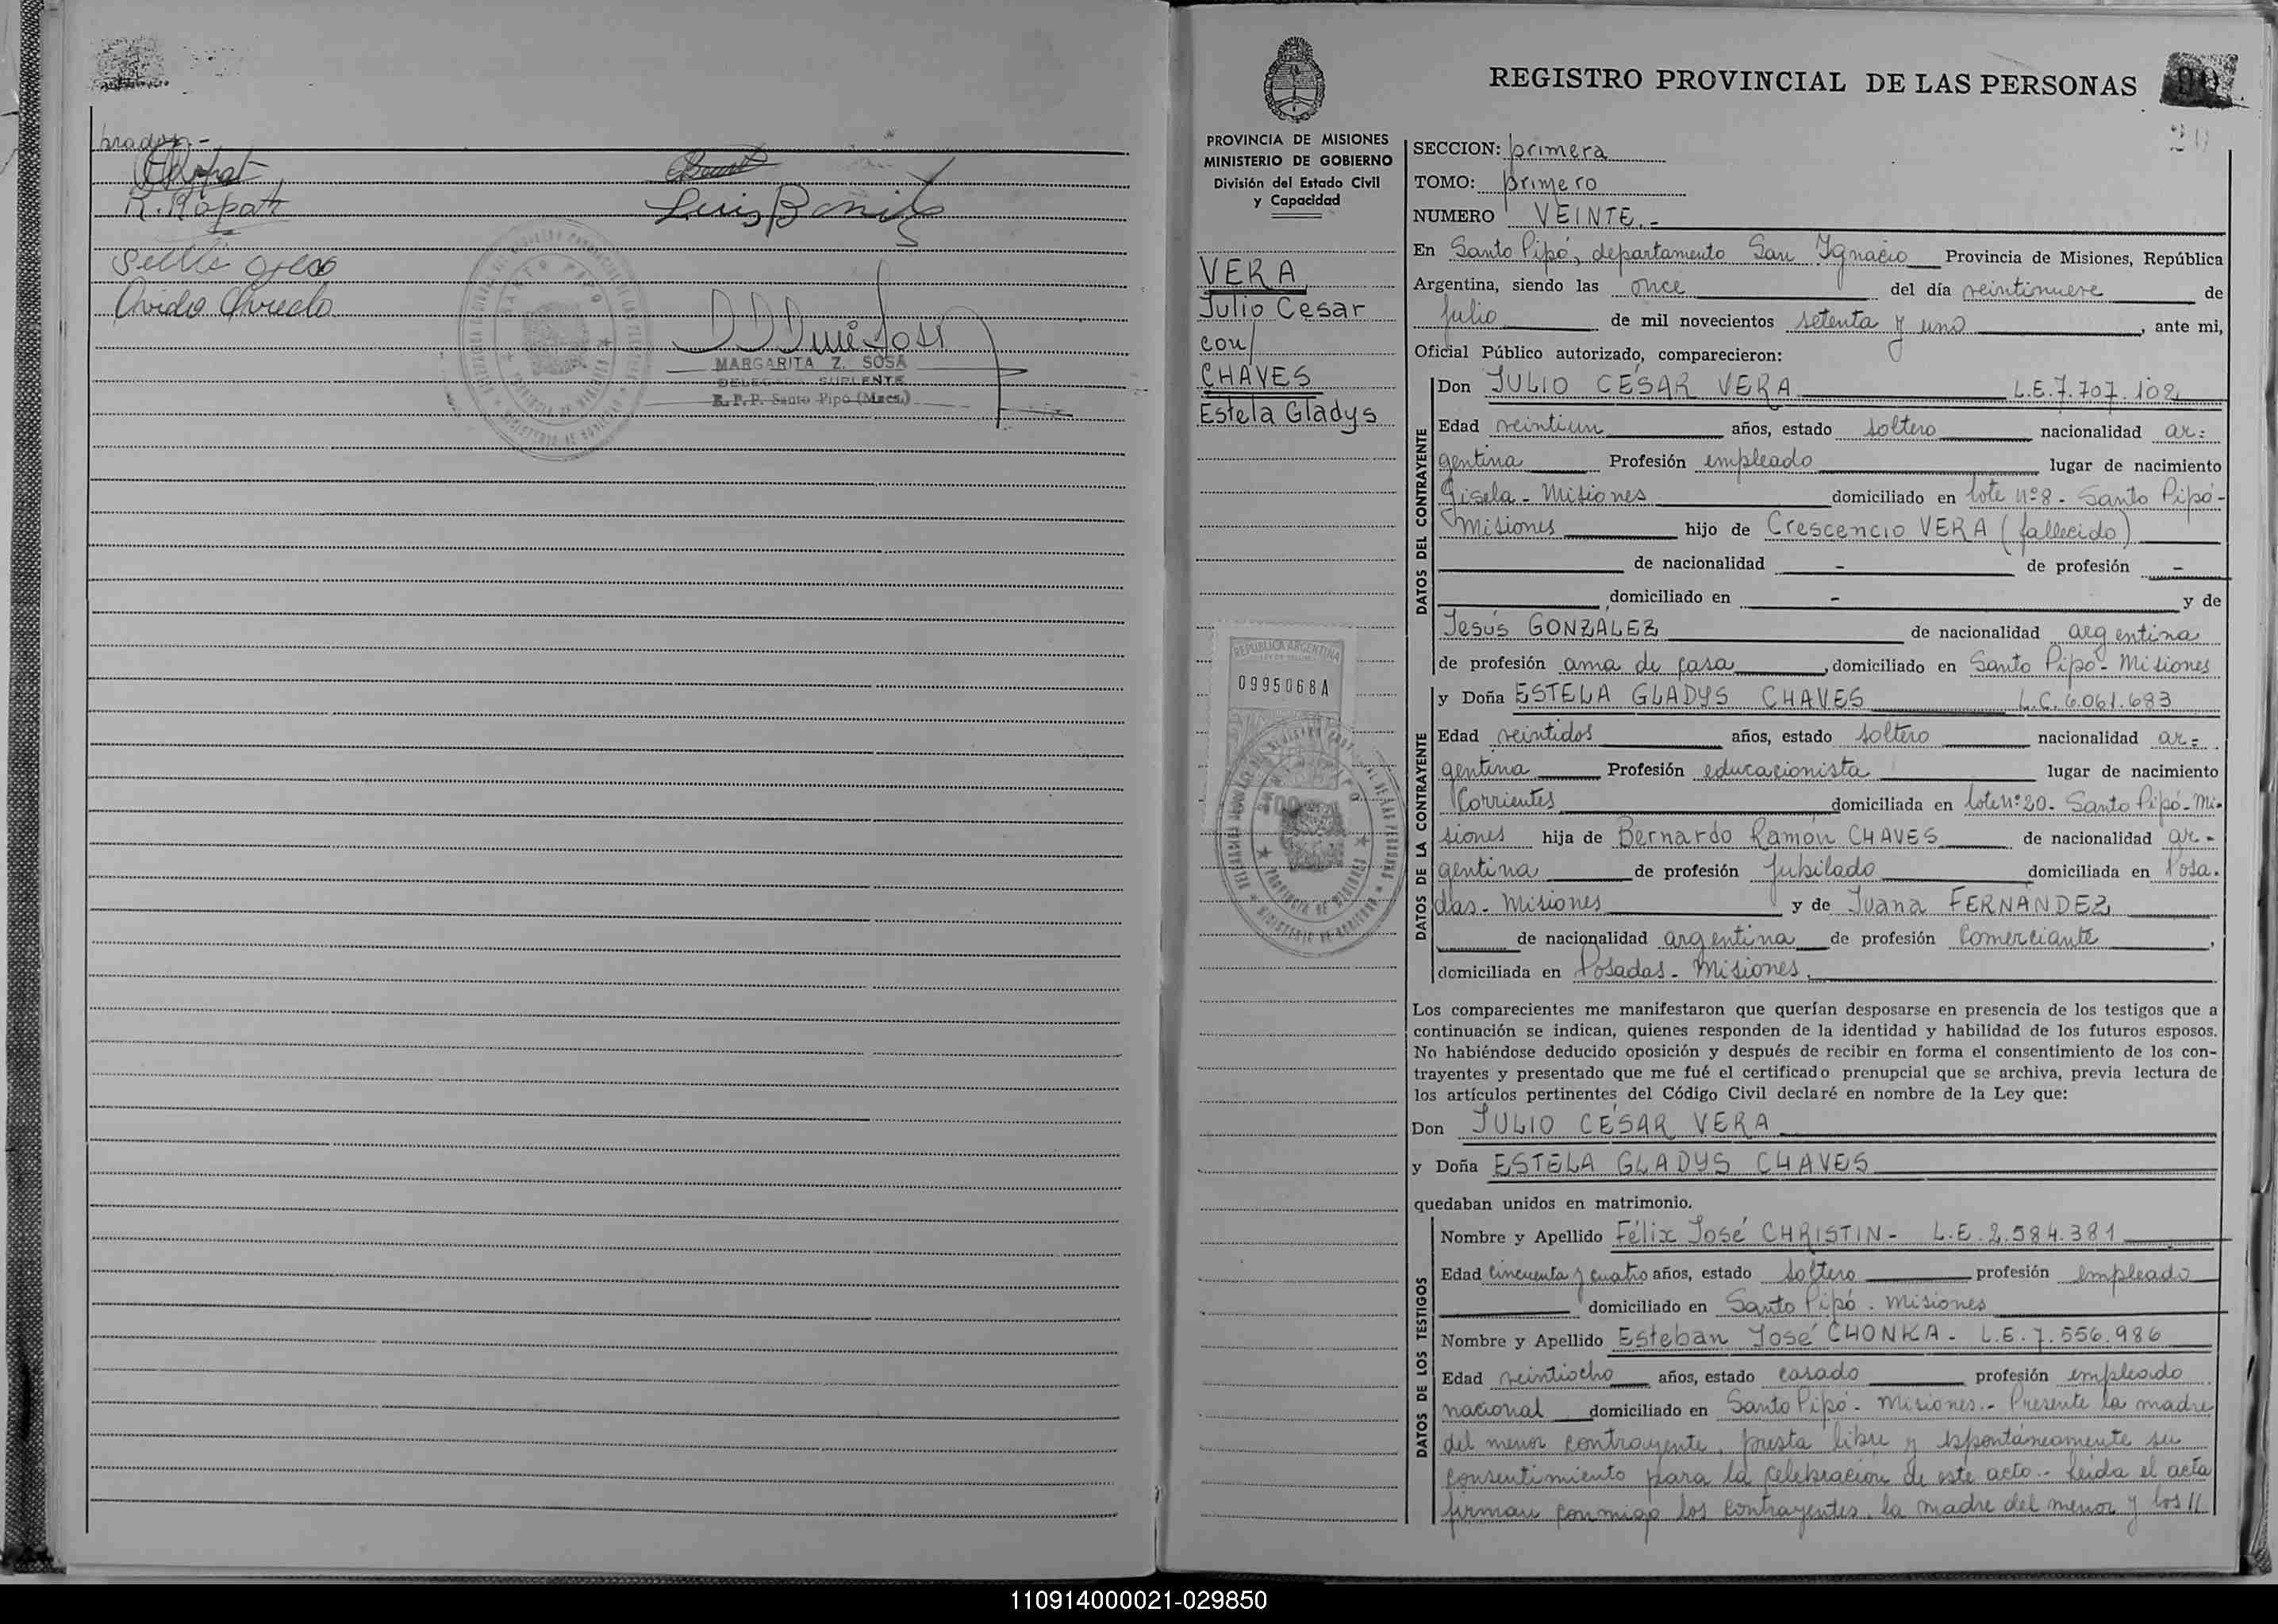 brados.-
R. Kopatz
Luis BoniL
Ovidio Oviedo
MARGARITA Z. SOSA
DELEGADA SUPLENTE
R. P. P. Santo Pipó (Mnes.)
REGISTRO PROVINCIAL DE LAS PERSONAS
PROVINCIA DE MISIONES
MINISTERIO DE GOBIERNO
División del Estado Civil
y Capacidad
VERA
Julio Cesar
con
CHAVES
Estela Gladys
REPUBLICA ARGENTINA
0995068A
SECCION: primera
TOMO: primero
NUMERO VEINTE.-
En Santo Pipó, departamento San Ignacio Provincia de Misiones, República
Argentina, siendo las once del día veintinueve de
Julio de mil novecientos setenta y uno, ante mi,
Oficial Público autorizado, comparecieron:
DATOS DEL CONTRAYENTE
Don JULIO CÉSAR VERA L.E.7.707.102
Edad veintiun años, estado soltero nacionalidad ar=
gentina Profesión empleado lugar de nacimiento
Gisela - Misiones domiciliado en lote nº 8 - Santo Pipó-
Misiones hijo de Crescencio VERA (fallecido)
de nacionalidad - de profesión -
domiciliado en - y de
Jesús GONZALEZ de nacionalidad argentina
de profesión ama de casa, domiciliado en Santo Pipó - Misiones
DATOS DE LA CONTRAYENTE
y Doña ESTELA GLADYS CHAVES L.C. 6.061.683
Edad veintidos años, estado soltero nacionalidad ar=
gentina Profesión educacionista lugar de nacimiento
Corrientes domiciliada en lote nº 20 - Santo Pipó - Mi-
siones hija de Bernardo Ramón CHAVES de nacionalidad ar-
gentina de profesión Jubilado domiciliada en Posa-
das - Misiones y de Juana FERNÁNDEZ
de nacionalidad argentina de profesión Comerciante,
domiciliada en Posadas - Misiones.
Los comparecientes me manifestaron que querían desposarse en presencia de los testigos que a
continuación se indican, quienes responden de la identidad y habilidad de los futuros esposos.
No habiéndose deducido oposición y después de recibir en forma el consentimiento de los con-
trayentes y presentado que me fué el certificado prenupcial que se archiva, previa lectura de
los artículos pertinentes del Código Civil declaré en nombre de la Ley que:
Don JULIO CÉSAR VERA
y Doña ESTELA GLADYS CHAVES
quedaban unidos en matrimonio.
DATOS DE LOS TESTIGOS
Nombre y Apellido Félix José CHRISTIN - L.E. 2.584.381
Edad cincuenta y cuatro años, estado soltero profesión empleado
domiciliado en Santo Pipó - Misiones
Nombre y Apellido Esteban José CHONKA - L.E. 7.556.986
Edad veintiocho años, estado casado profesión empleado
nacional domiciliado en Santo Pipó - Misiones.- Presente la madre
del menor contrayente, presta libre y espontáneamente su
consentimiento para la celebración de este acto.- Leida el acta
firman conmigo los contrayentes, la madre del menor y los //
110914000021-029850